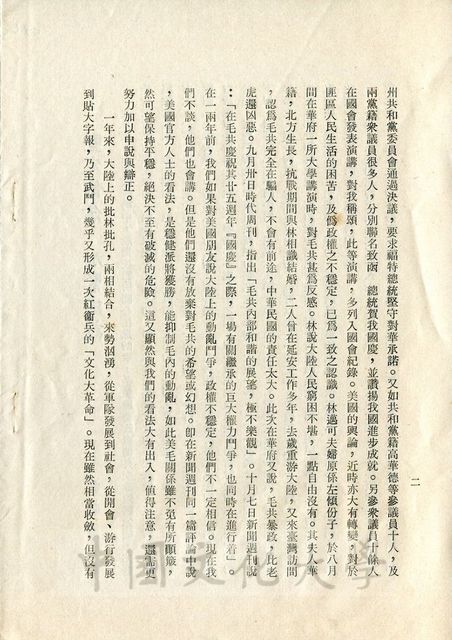 二
州共和黨委員會通過決議，要求福特總統堅守對華承諾。又如共和黨籍高華德等參議員十人，及
兩黨籍衆議員很多人，分別聯名致函　總統賀我國慶，並讚揚我國進步成就。另參衆議員十餘人
在國會發表演講，對我稱頌，此等演講，多列入國會紀錄。美國的輿論，近時亦大有轉變，對於
匪區人民生活的困苦，及僞政權之不穩定，已爲一致之認識。林邁可夫婦原係左傾份子，於八月
間在華府一所大學講演時，對毛共甚爲反感。林說大陸人民窮困不堪，一點自由沒有。其夫人華
籍，北方生長，抗戰期間與林相識結婚，二人曾在延安工作多年，去歲重游大陸，又來臺灣訪問
，認爲毛共完全在騙人，不會有前途，中華民國的責任太大。此次在華府又說，毛共暴政，比老
虎還凶惡。九月卅日時代周刋，指出「毛共內部和諧的展望，極不樂觀」。十月七日新聞週刋說
：「在毛共慶祝其廿五週年『國慶』之際，一場有關繼承的巨大權力鬥爭，也同時在進行着」。
在一兩年前，我們如果對美國朋友說大陸上的動亂鬥爭，政權不穩定，他們不一定相信。現在我
們不談，他們也會講。但是他們還沒有放棄對毛共的希望或幻想。卽在新聞週刋同一篇評論中說
，美國官方人士的看法，是穩健派將獲勝，能抑制毛內的動亂，如此美毛關係雖不免有所顚簸，
然可望保持平穩，絕決不至有破滅的危險。這又顯然與我們的看法大有出入，値得注意，還需更
努力加以申說與辯正。
一年來，大陸上的批林批孔，兩相結合，來勢洶湧，從軍隊發展到社會，從開會、游行發展
到貼大字報，乃至武鬥，幾乎又形成一次紅衞兵的「文化大革命」。現在雖然相當收斂，但沒有
中國文化大學